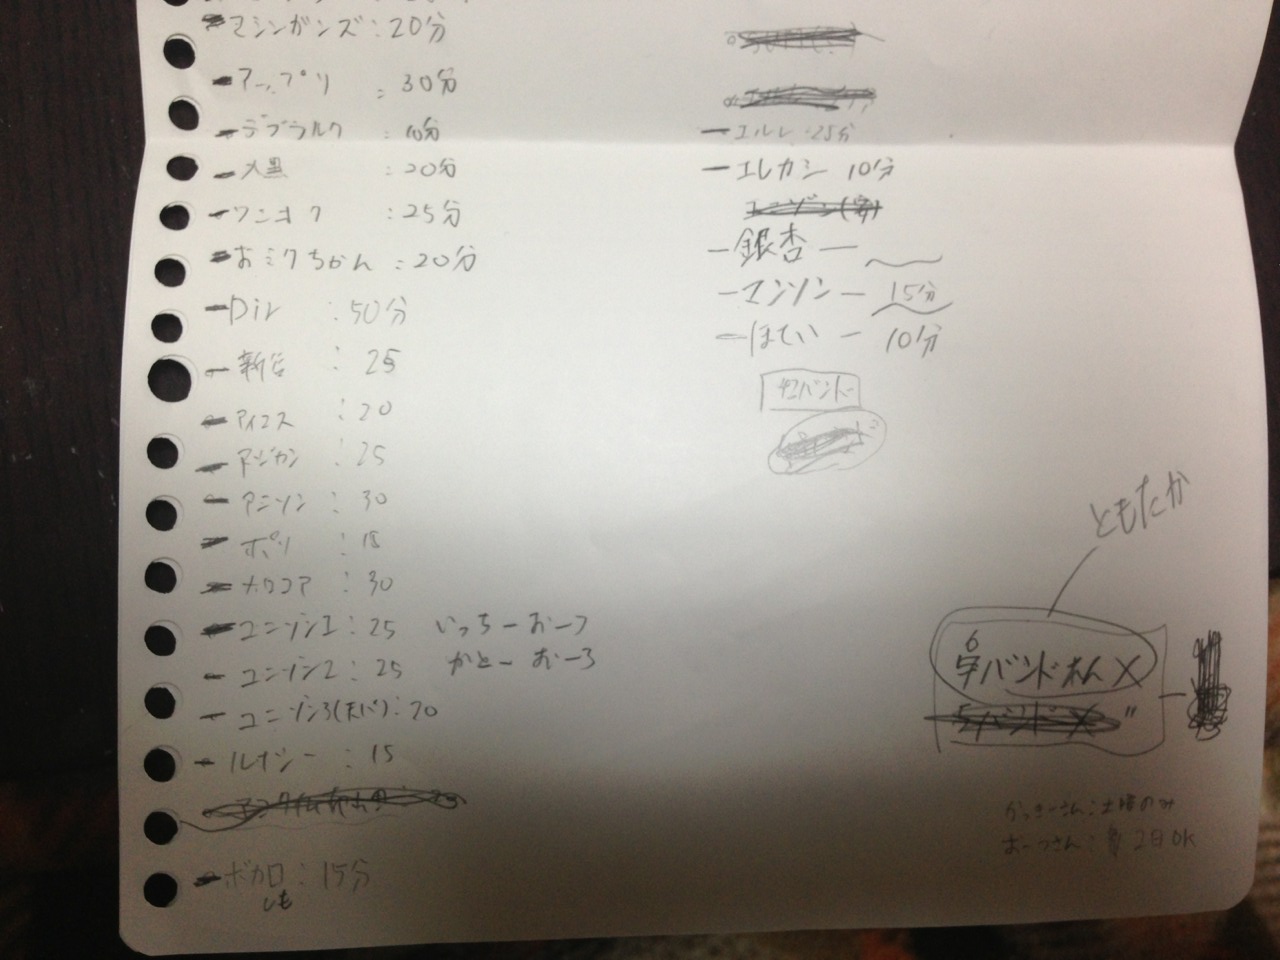 マシンガンズ：20分
アップリ：30分
デブラルク：10分
大黒：20分
ワンオク：25分
おミクちゃん：20分
Dir：50分
新谷：25
アイコス：20
アジカン：25
アニソン：30
ポリ：15
メロコア：30
ユニゾン1：25 いっちーおーつ
ユニゾン2：25 かとーおーつ
ユニゾン3(天パ)：20
ルナシー：15
ボカロ：15分
しも
エルレ：25分
エレカシ 10分
銀杏ー
マンソンー 15分
ほていー 10分
42バンド
ともたか
6
バンドれんX
かっきーさん：土曜のみ
おーつさん：2日OK